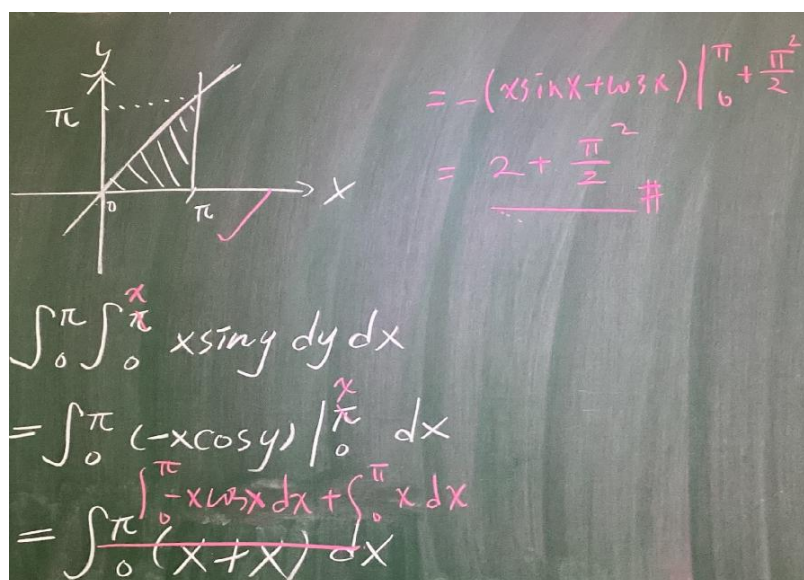 y
π
0
π
x
∫₀^π ∫₀^π x x sin y dy dx
= ∫₀^π (-x cos y) |₀^π x dx
∫₀^π -x cos x dx + ∫₀^π x dx
= ∫₀^π (x+x) dx
= -(x sin x + cos x) |₀^π + π²/2
= 2 + π²/2 #